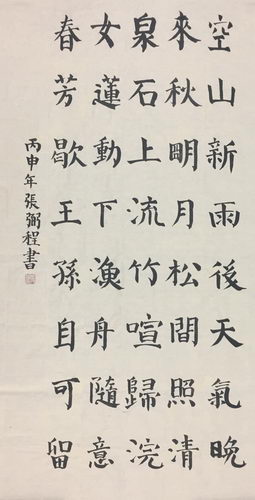 空山新雨後天氣晚
來秋明月松間照清
泉石上流竹喧歸浣
女蓮動下漁舟隨意
春芳歇王孫自可留
丙申年張弼程書